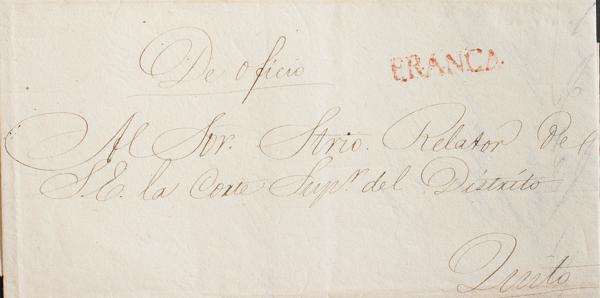 De oficio
FRANCA
Al Sor. Strio. Relator de
S.E. la Corte Supr. del Distrito
Quito